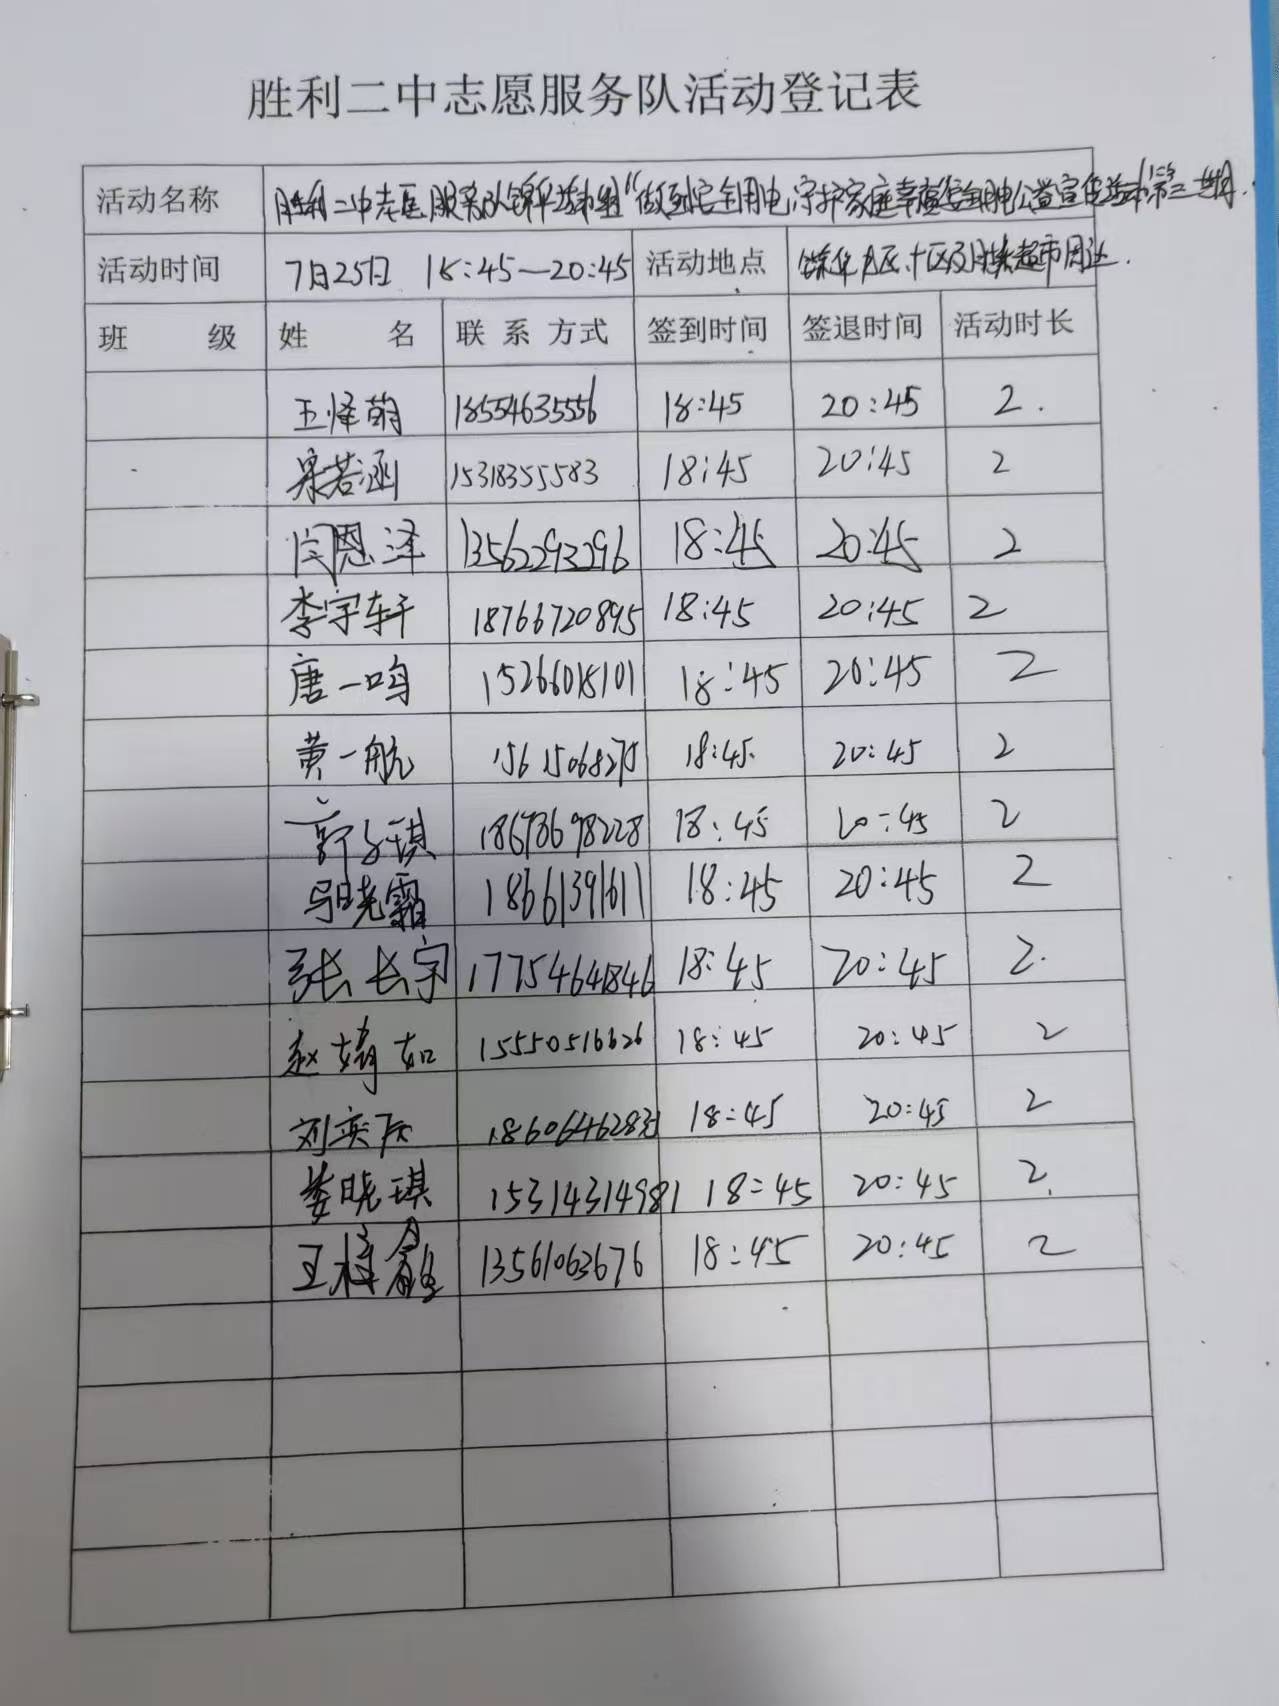 胜利二中志愿服务队活动登记表
活动名称 胜利二中志愿服务队锦华 "做到安全用电,守护家庭幸福"安全用电公益宣传活动第三期.
活动时间 7月25日 18:45—20:45 活动地点 锦华 区、十区及 超市周边.
班 级 姓 名 联系方式 签到时间 签退时间 活动时长
王烽萌 18554635556 18:45 20:45 2.
宋若涵 15318355583 18:45 20:45 2
闫恩泽 13562293296 18:45 20:45 2
李宇轩 18766720895 18:45 20:45 2
唐一鸣 15266018101 18:45 20:45 2
黄一航 18:45. 20:45 2
郭子琪 18678698228 18:45 20:45 2
马晓霜 18661391611 18:45 20:45 2
张长宇 17754641846 18:45 20:45 2.
赵婧如 15550516626 18:45 20:45 2
刘奕辰 18:45 20:45 2
娄晓琪 15314314981 18:45 20:45 2.
王梓 13561063676 18:45 20:45 2